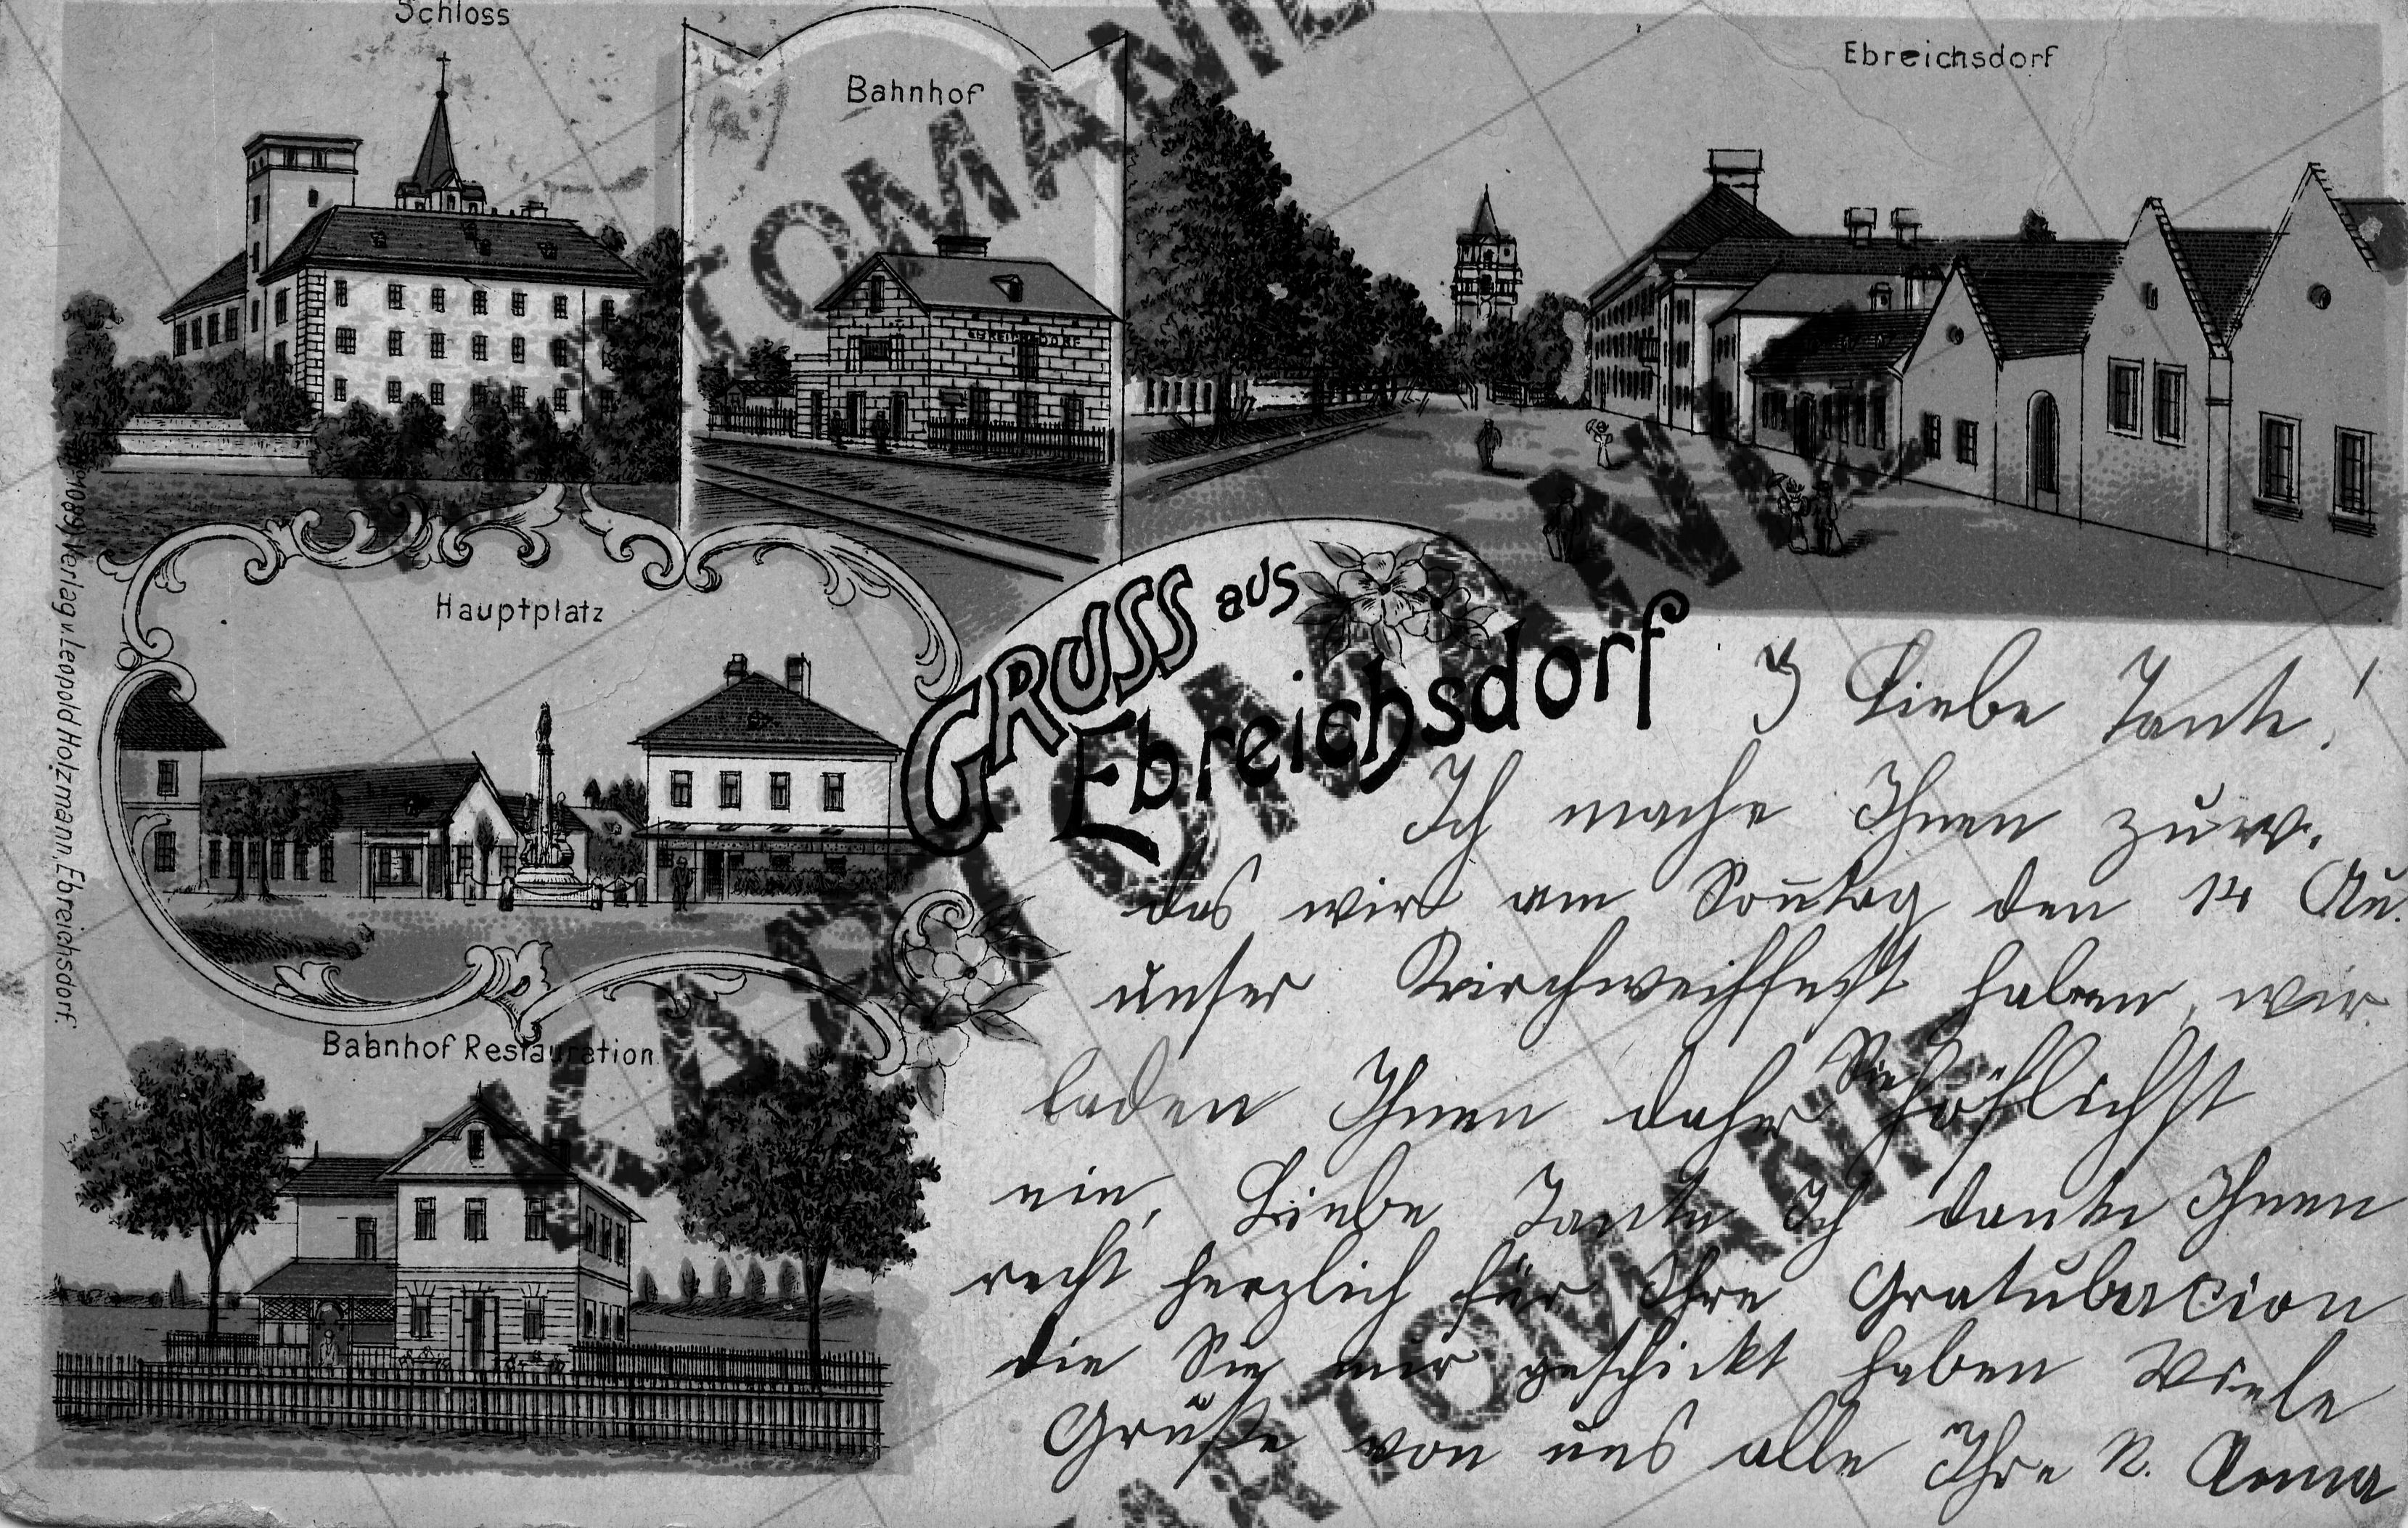 Schloss
Bahnhof
Ebreichsdorf
EBREICHSDORF
Hauptplatz
Bahnhof Restauration
GRUSS aus
Ebreichsdorf
Verlag v. Leopold Holzmann, Ebreichsdorf.
Liebe Tante!
Ich mache Ihnen zuw.
das wir am Sontag den 14 Au.
unser Kirchweihfest haben, wir
laden Ihnen daher Sie höflichst
ein, Liebe Tante Ich danke Ihnen
recht herzlich für Ihre Gratulacion
die Sie mir geschickt haben Viele
Grüße von uns alle Ihre N. Anna
KARTOMANIE.NL
KARTOMANIE